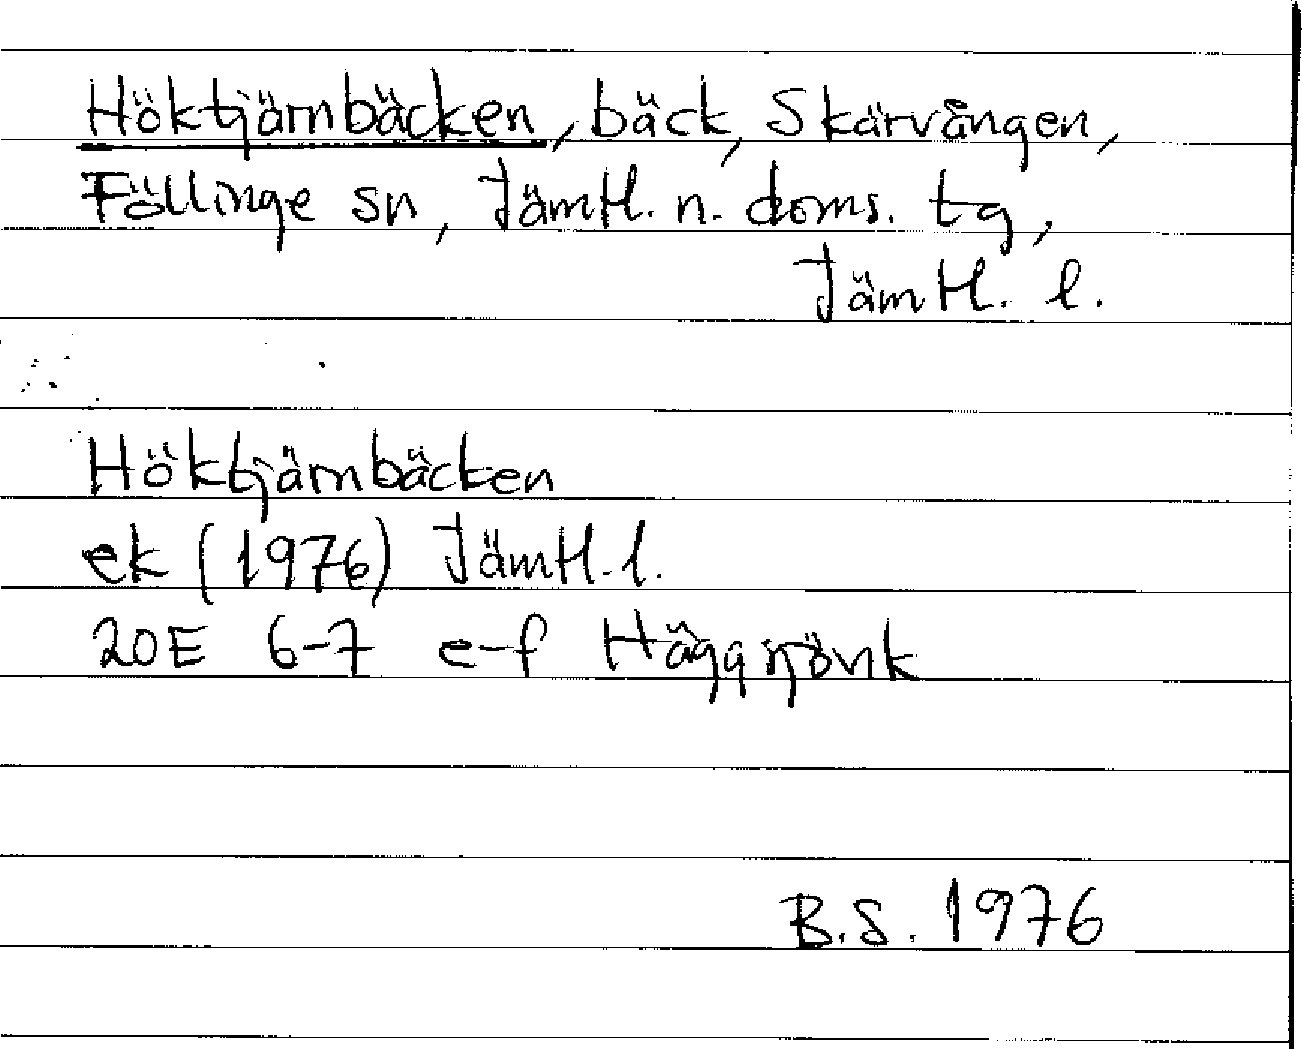 Höktjärnbäcken, bäck, Skärvången,
Föllinge sn, Jämtl. n. doms. tg,
Jämtl. l.
Höktjärnbäcken
ek (1976) Jämtl. l.
20E 6-7 e-f Häggnjövik
B.S. 1976